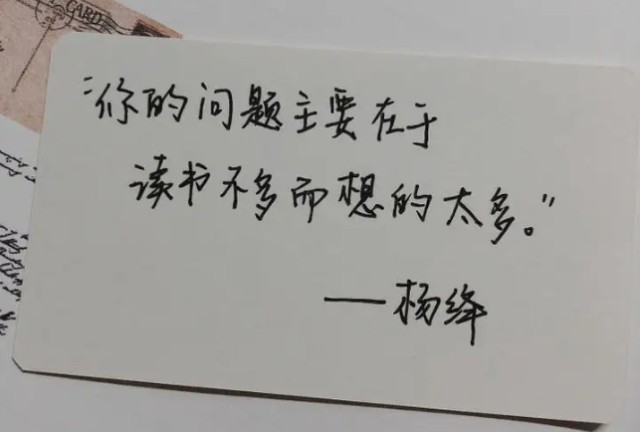 CARD
"你的问题主要在于
读书不多而想的太多。"
——杨绛